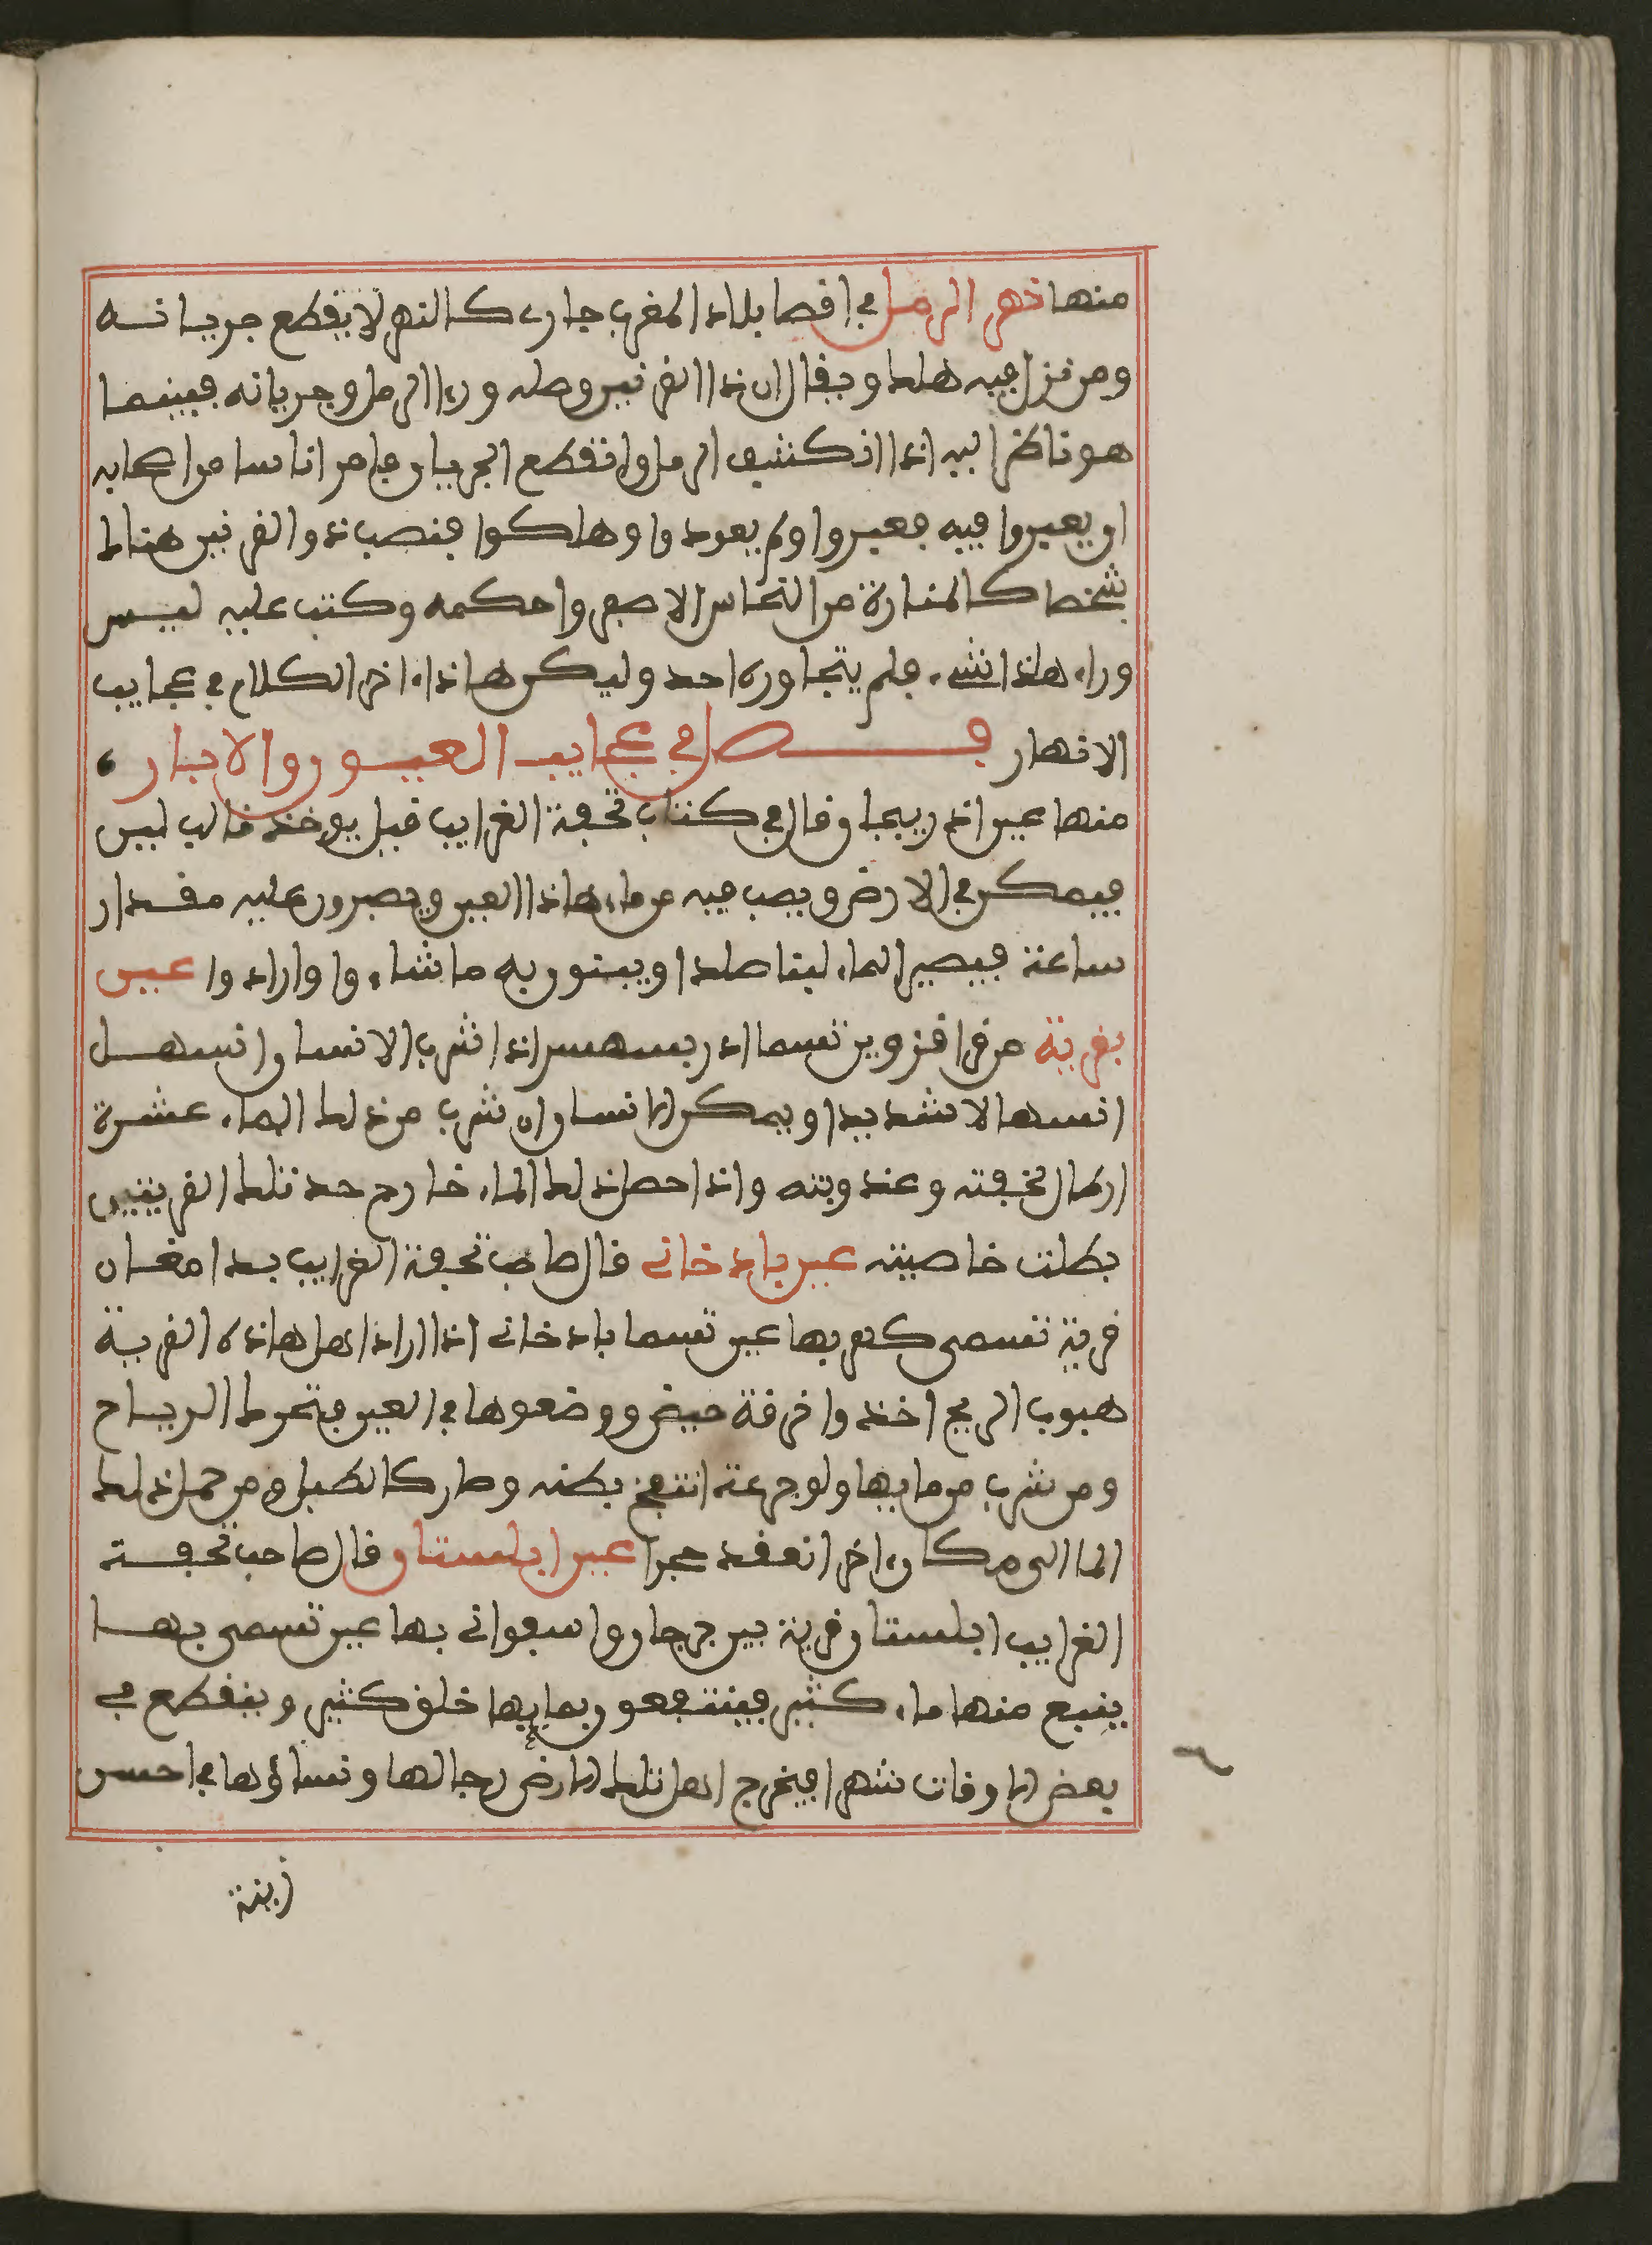 منها نهر الرمل في اقصا بلاد المغرب جار كالنهر لا يقطع جريانه
ومن نزل فيه هلك ويقال ان ذا القرنين وصله ورءا الرمل وجريانه فبينما
هو ناظر اليه اذا انكشف الرمل وانقطع الجريان فامر اناسا من اصحابه
ان يعبروا فيه فعبروا ولم يعودوا وهلكوا فنصب ذو القرنين هناك
شخصا كالمنارة من النحاس الاصفر واحكمه وكتب عليه ليس
وراء هاذا شيء فلم يتجاوره احد وليكن هاذا ءاخر الكلام في عجايب
الانهار فصل في عجايب العيون والابار
منها عين اذربيجان قال في كتاب تحفة الغرايب قيل يوخذ قالب لبن
فيمكن في الارض ويصب فيه من ماء هاذا العين ويصبرون عليه مقدار
ساعة فيصير الماء لبنا صلدا ويبنون به ما شاءوا وارادوا عين
بقرية من قرا قزوين تسما ادربسهس اذا شرب الانسان انسهل
انسهالا شديدا ويمكن الانسان ان شرب من ذلك الماء عشرة
ارطال لخفته وعذوبته واذا حمل ذلك الماء خارج حد تلك القريتين
بطلت خاصيته عين باد خاني قال صاحب تحفة الغرايب بدامغان
قرية تسمى كعر بها عين تسما باد خاني اذا اراد اهل هاذه القرية
هبوب الريح اخذوا خرقة حيض ووضعوها في العين فتحرك الرياح
ومن شرب من مايها ولو جرعة انتفخ بطنه وصار كالطبل ومن حمل ذلك
الما الى مكان ءاخر انعقد حجرا عين ابلستان قال صاحب تحفة
الغرايب ابلستان قرية بين جرجان واسفراني بها عين تسمى بها
ينبع منها ماء كثير فينتفعون بمايها خلق كثير وينقطع في
بعض الاوقات شهرا فيخرج اهل تلك الارض رجالها ونساؤها في احسن
زينة